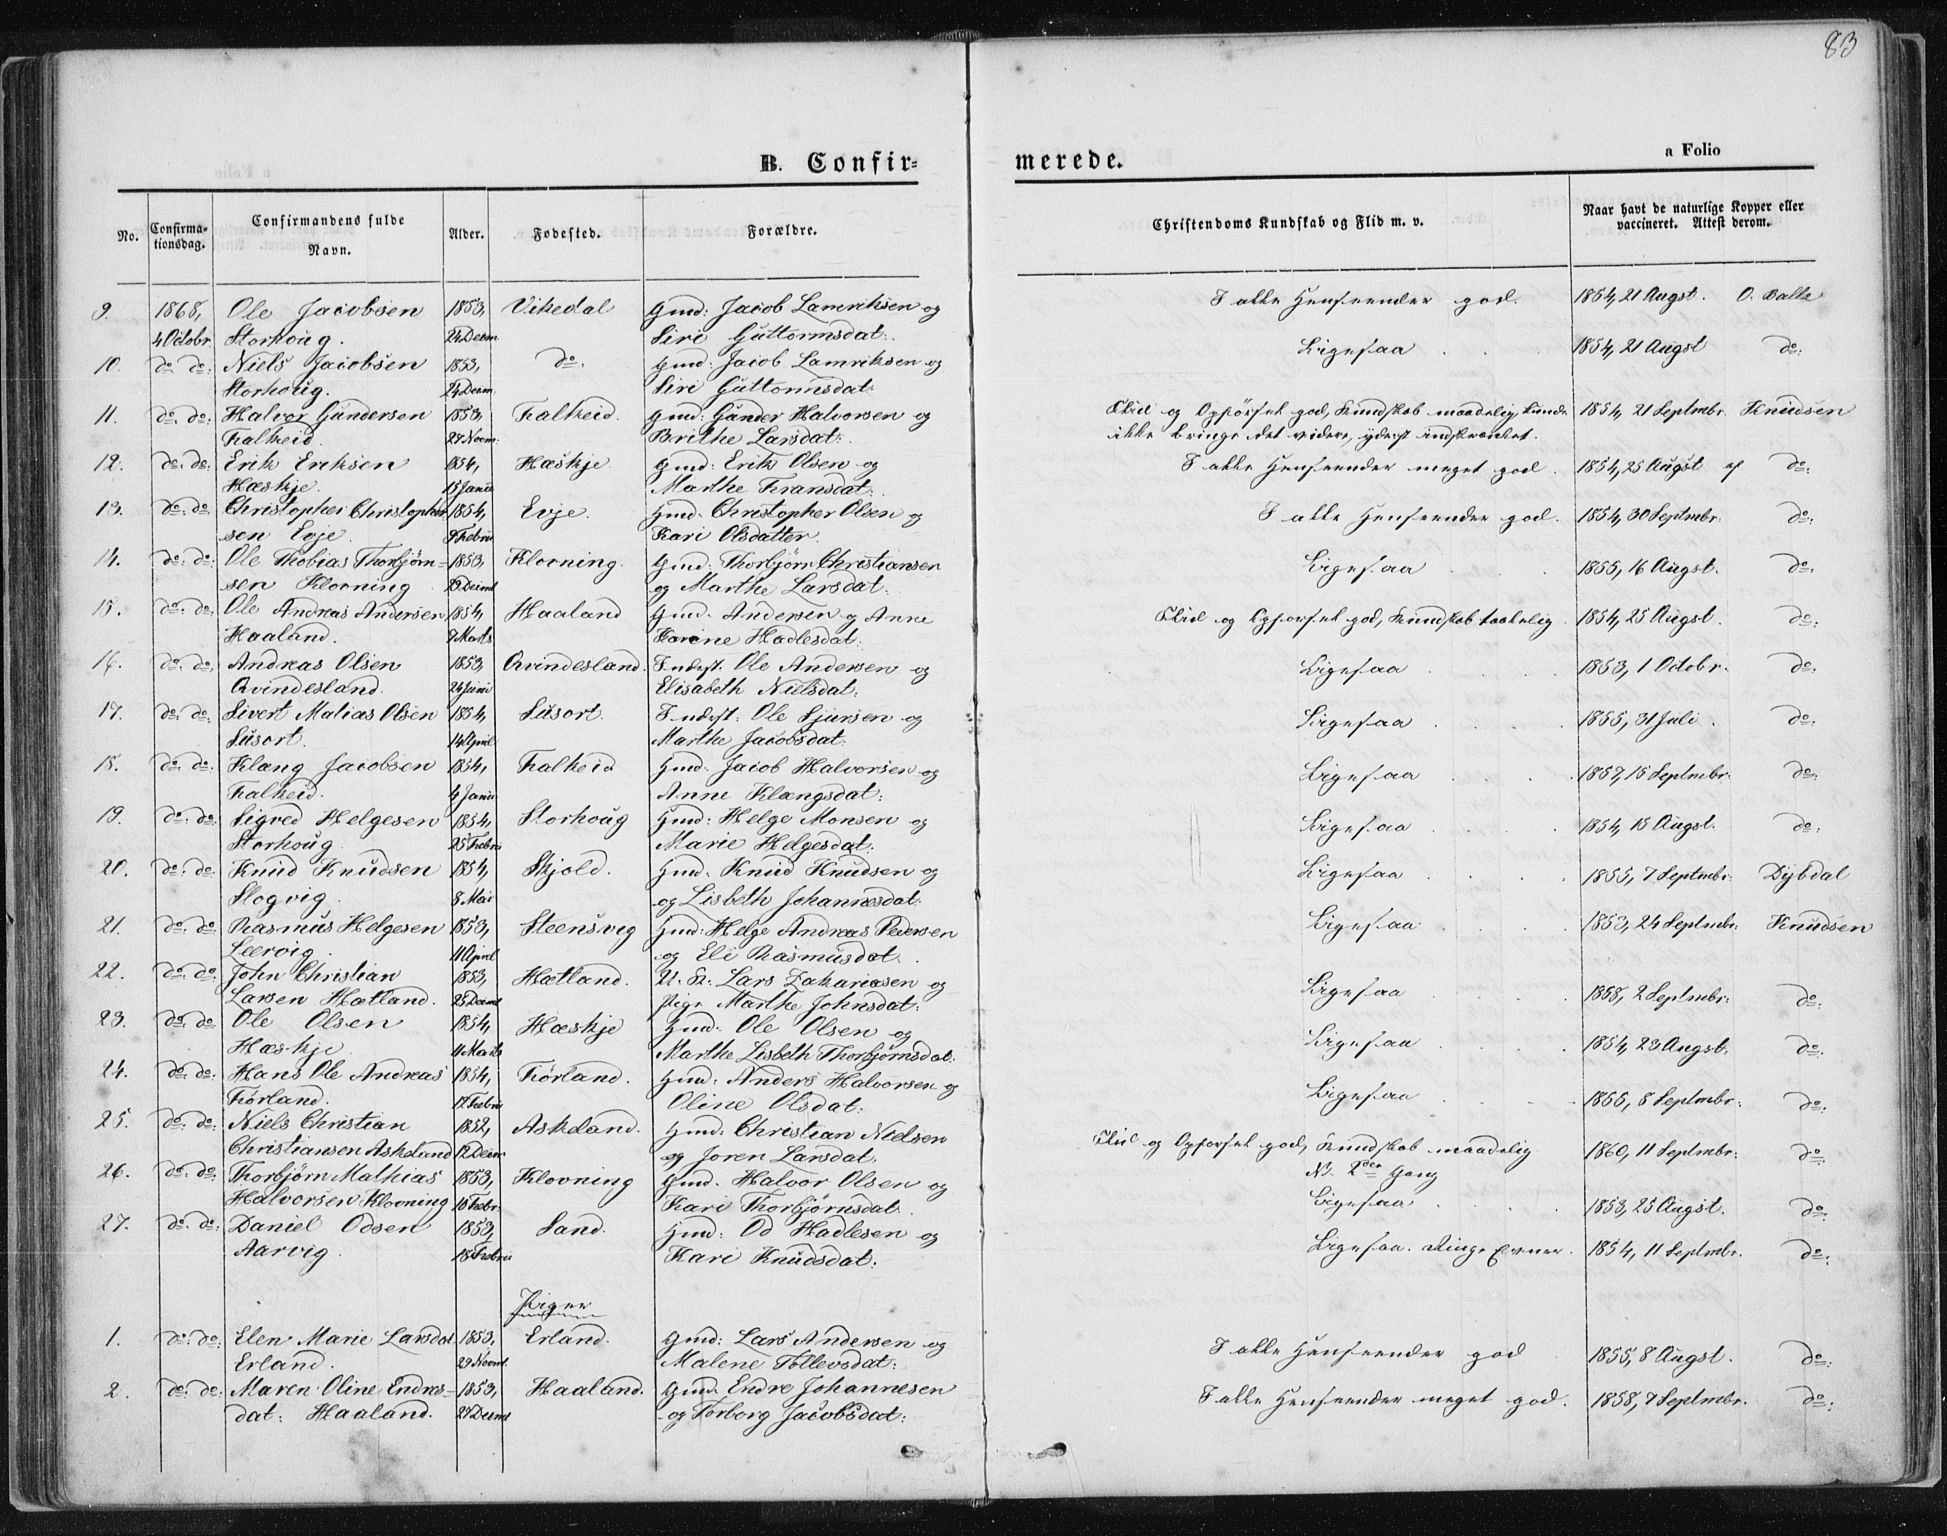 83
B. Confir-
merede.
a Folio
No.
Confirma-
tionsdag.
Confirmandens fulde
Navn.
Alder.
Fødested.
Forældre.
Christendoms Kundskab og Flid m. v.
Naar havt de naturlige Kopper eller
vaccineret. Attest derom.
9. 1868, Ole Jacobsen 1853, Vikedal Gmd: Jacob Lamriksen og I alle Henseender god. 1854, 21 Augst. O. Balle
4 Octobr Storhoug. 24 Decm Siri Guttormsdat:
10. do: do: Niels Jacobsen 1853, do: Gmd: Jacob Lamriksen og Ligesaa 1854, 21 Augst do:
Storhoug. 24 Decm Siri Guttormsdat:
11. do: do: Halvor Gundersen 1853, Falkeid. Gmd: Gunder Halvorsen og Flid og Opførsel god, Kundskab maadelig, kunde 1854, 21 Septmbr. Knudsen
Falkeid. 27 Novm Brithe Larsdat: ikke bringe det videre, yderst indskrænket.
12. do: do: Erik Eriksen 1854, Hæskje. Gmd: Erik Olsen og I alle Henseender meget god. 1854, 25 Augst af do:
Hæskje. 15 Janu Marthe Fransdat:
13. do: do: Christopher Christopher 1854, Evje. Gmd: Christopher Olsen og I alle Henseender god. 1854, 30 Septmbr. do:
sen Evje. 9 Febru Kari Olsdatter.
14. do: do: Ole Thobias Thorbjørn- 1853, Klovning. Gmd: Thorbjørn Christiansen Ligesaa 1855, 16 Augst. do:
sen Klovning Decmt og Marthe Larsdat:
15. do: do: Ole Andreas Andersen 1854, Haaland Gmd: Andersen og Anne Flid og Opførsel god, Kundskab taalelig 1854, 25 Augst. do:
Haaland. Marts Karine Hadlesdat:
16. do: do: Andreas Olsen 1853, Qvindesland. Inderst: Ole Andersen og Ligesaa 1853, 1 Octobr. do:
Qvindesland. 24 Juni Elisabeth Nielsdat:
17. do: do: Sivert Matias Olsen 1854, Susort. Inderst: Ole Sjursen og Ligesaa 1855, 31 Juli. do:
Susort. 14 April Marthe Jacobsdat:
18. do: do: Klæng Jacobsen 1854, Falkeid Gmd: Jacob Halvorsen og Ligesaa 1857, 15 Septmbr. do:
Falkeid. 4 Janu Anne Klængsdat:
19. do: do: Sigved Helgesen 1854, Storhoug Gmd: Helge Monsen og Ligesaa 1854, 15 Augst. do:
Storhoug 25 Febru Marie Helgesdat:
20. do: do: Knud Knudsen 1854, Skjold. Gmd: Knud Knudsen og Ligesaa 1855, 7 Septmbr. Dybdal
Slogvig. 8 Mai og Lisbeth Johannesdat:
21. do: do: Rasmus Helgesen 1853, Steensvig Gmd: Helge Andreas Pedersen Ligesaa 1853, 24 Septmbr. Knudsen
Leervig. 11 April og Eli Rasmusdat:
22. do: do: John Christian 1853, Hætland. U. K. Lars Zakariasen og Ligesaa 1858, 2 Septmbr: do:
Larsen Hætland. 25 Decmt Pige Marthe Johnsdat:
23. do: do: Ole Olsen 1854, Hæskje Gmd: Ole Olsen og Ligesaa 1854, 23 Augst. do:
Hæskje 11 Marts Marthe Lisbeth Thorbjørnsdat.
24. do: do: Hans Ole Andreas 1854, Førland. Gmd: Anders Halvorsen og Ligesaa 1855, 8 Septmbr: do:
Førland. 17 Febru Oline Olsdat:
25. do: do: Niels Christian 1852, Askeland. Gmd: Christian Nielsen Flid og Opførsel god, Kundskab maadelig 1860, 11 Septmbr: do:
Christiansen Askeland 12 Decm og Joren Larsdat: NB. 2den Gang
26. do: do: Thorbjørn Mathias 1853, Klovning Gmd. Halvor Olsen og Ligesaa 1853, 25 Augst. do:
Halvorsen Klovning 18 Febr. Kari Thorbjørnsdat:
27. do: do: Daniel Odsen 1853, Sand. Gmd: Od Hadlesen og Ligesaa. Ringe Evner. 1854, 11 Septmbr. do:
Aarvig. 18 Febru Kari Knudsdat:
Piger
1. do: do: Elen Marie Larsdat 1853, Erland. Gmd: Lars Andersen og I alle Henseender god 1855, 8 Augst. do:
Erland. 29 Novmt. Malene Tollevsdat:
2. do: do: Maren Oline Endres- 1853, Haaland. Gmd. Endre Johannesen I alle Henseender meget god. 1858, 7 Septmbr. do:
dat: Haaland. 27 Decmt og Torborg Jacobsdat: